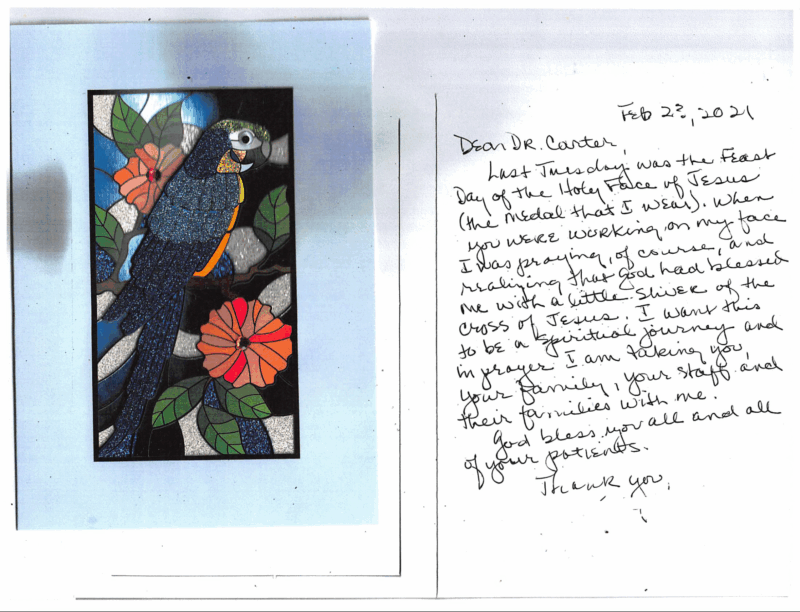 Feb 23, 2021
Dear Dr. Carter,
Last Tuesday was the Feast
Day of the Holy Face of Jesus
(the medal that I wear). When
you were working on my face
I was praying, of course, and
realizing that God had blessed
me with a little sliver of the
cross of Jesus. I want this
to be a spiritual journey and
in prayer I am taking you,
your family, your staff and
their families with me.
God bless you all and all
of your patients.
Thank you,